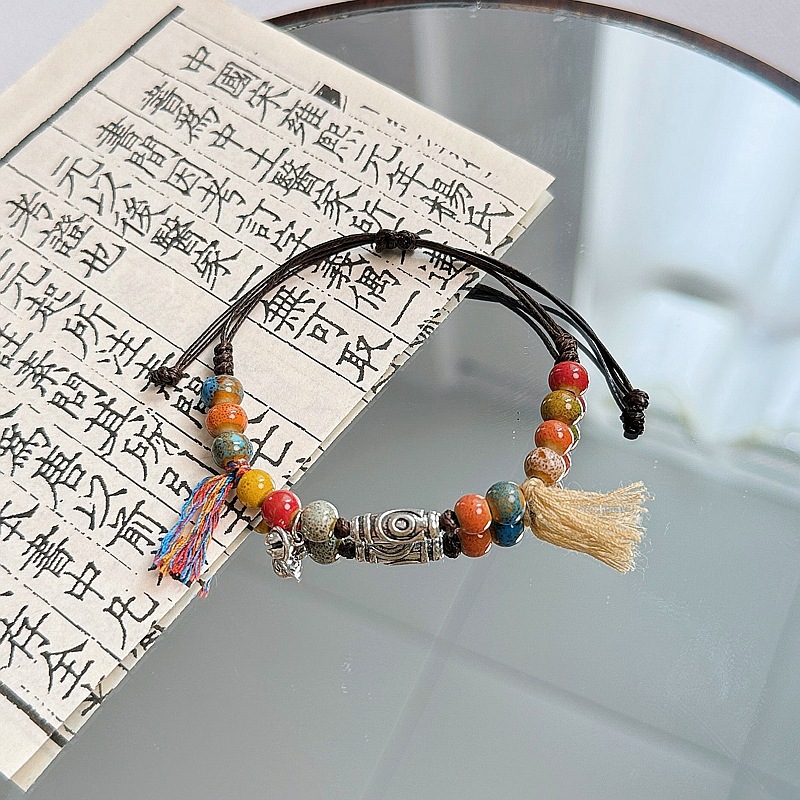 中國宋雍熙元年楊氏
為中土醫家所
書間因考訂字義偶一
元以後醫家一無可取
考證也
元起所注
注素問其所引
為唐以前
本書中凡
存全